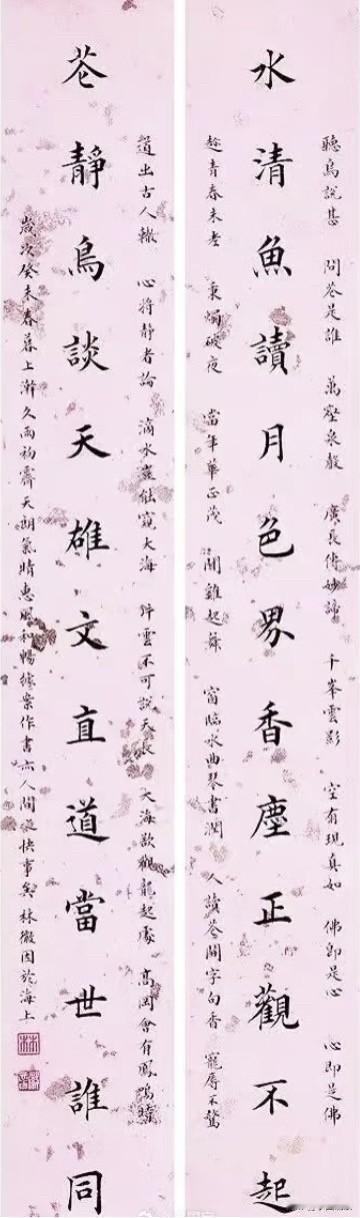 聽鳥說甚 問花是誰 萬壑泉聲 廣長傳妙諦 千峯雲影 空有現真如 佛即是心 心即是佛
水清魚讀月色界香塵正觀不起
趁青春未老 秉燭破夜 當年華正茂 聞雞起舞 窗臨水曲琴書潤 人讀花間字句香 寵辱不驚
道出古人轍 心將靜者論 滴水豈能窺大海 片雲不可說天長 大海欲觀龍起處 高岡會有鳳鳴時
花靜鳥談天雄文直道當世誰同
歲次癸未春暮上澣久雨初霽天朗氣晴惠風和暢據案作書亦人間之快事矣 林徽因於海上
林